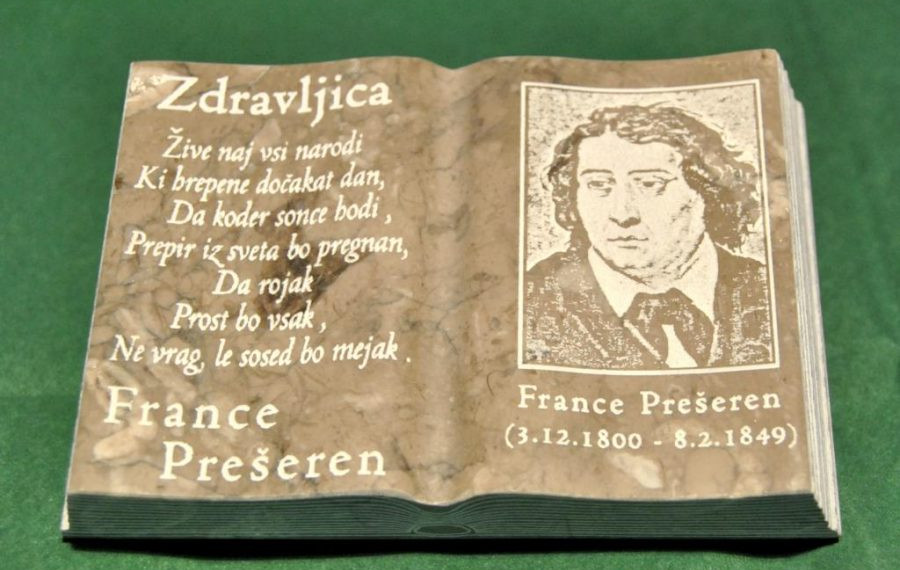 Zdravljica
Žive naj vsi narodi
Ki hrepene dočakat dan,
Da koder sonce hodi,
Prepir iz sveta bo pregnan,
Da rojak
Prost bo vsak,
Ne vrag, le sosed bo mejak.
France
Prešeren
France Prešeren
(3.12.1800 - 8.2.1849)